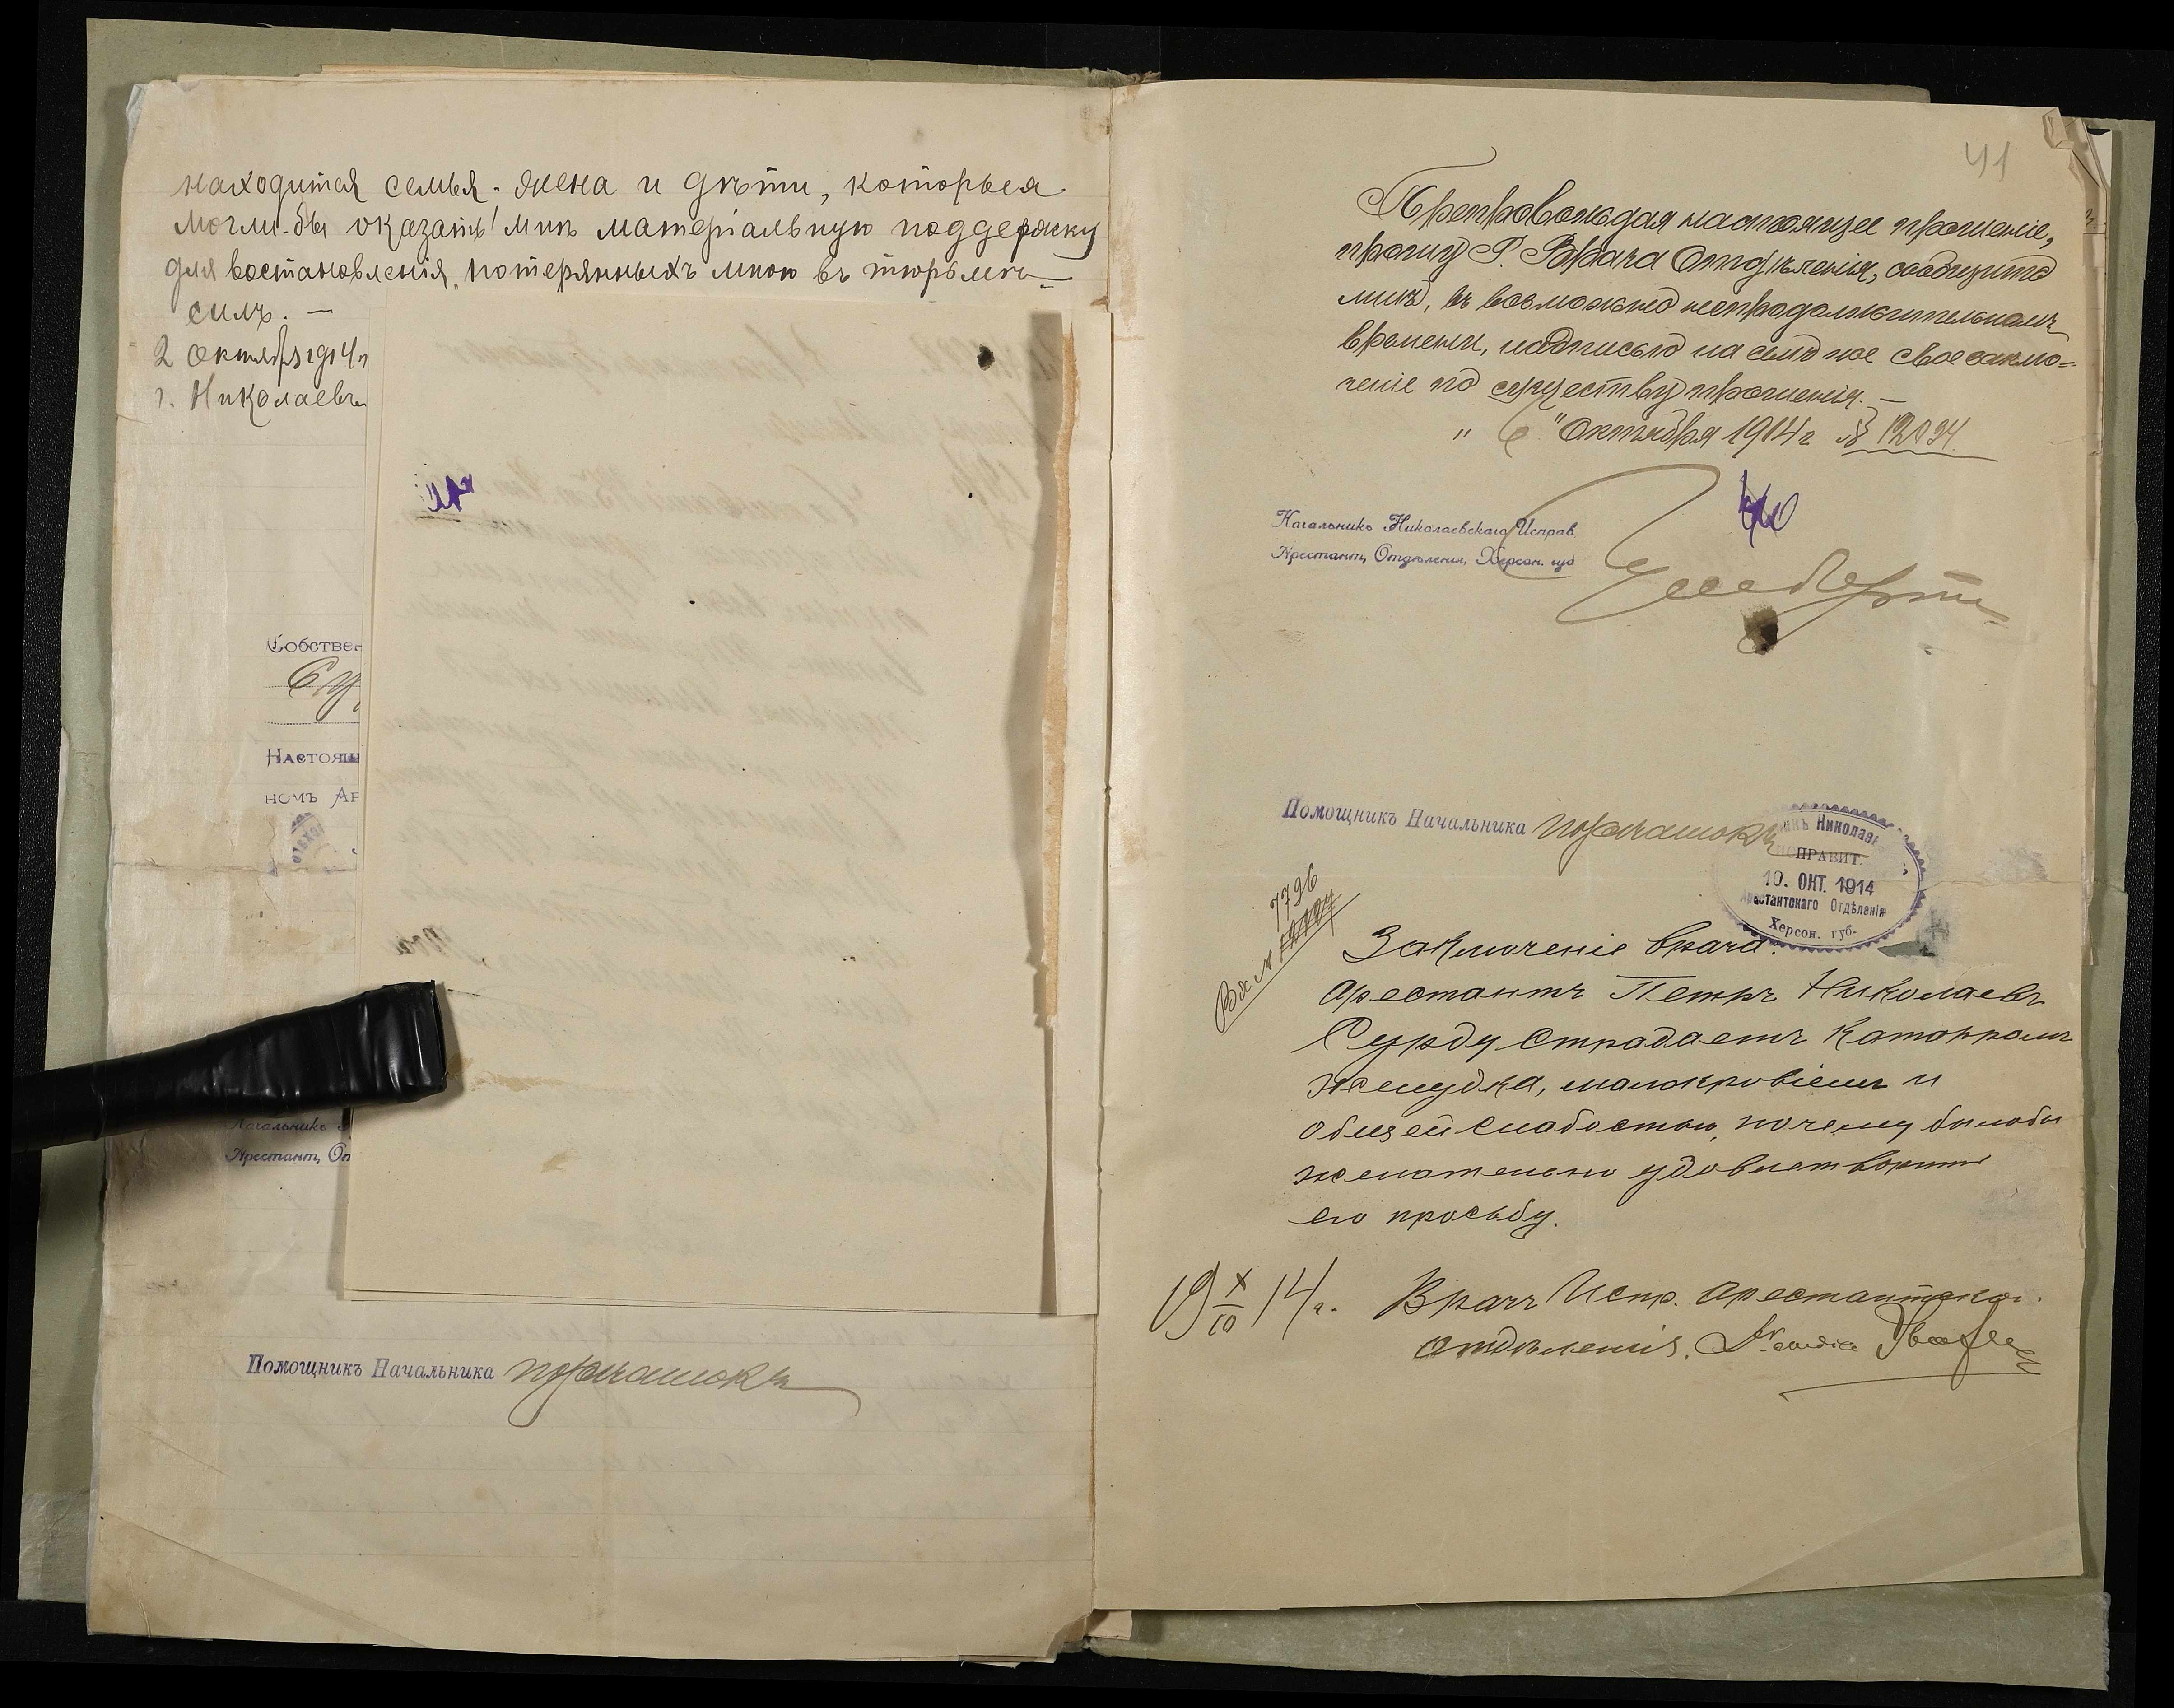 находится семья, жена и дѣти, которыя
могли-бы оказать мнѣ матеріальную поддержку
для востановленія, потерянныхъ мною въ тюрьмѣ
силъ. —
2 Октября 1914 г
г. Николаевъ
Собствен
Су
Настоящ
номъ Ар
Начальникъ
Арестант, От
Помощникъ Начальника
41
Препровождая настоящее прошеніе,
прошу Г. Врача Отдѣленія, сообщить
мнѣ, въ возможно непродолжительномъ
времени, надписью на семъ же свое заклю-
ченіе по существу прошенія. —
" 6 " Октября 1914 г № 12094
Начальникъ Николаевскаго Исправ.
Арестант, Отдѣленія, Херсон. губ
Помощникъ Начальника
Николаев
ИСПРАВИТ.
10. ОКТ. 1914
Арестантскаго Отдѣленія
Херсон. губ.
7796
Заключеніе врача.
Арестантъ Петръ Николаевъ
Сурду страдаетъ катарромъ
желудка, малокровіемъ и
общей слабостью, почему было бы
желательно удовлетворить
его просьбу.
19 X/10 14 г. Врачъ Испр. Арестантскаго
отдѣленія.